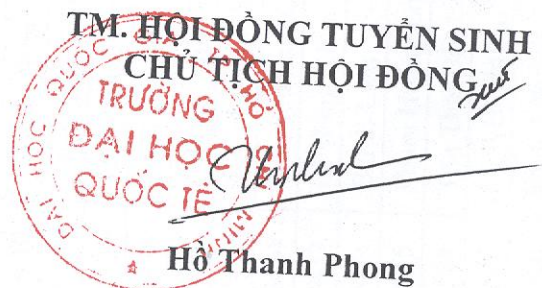 TM. HỘI ĐỒNG TUYỂN SINH
CHỦ TỊCH HỘI ĐỒNG
TRƯỜNG
ĐẠI HỌC
QUỐC TẾ
ĐẠI HỌC QUỐC
Hồ Thanh Phong